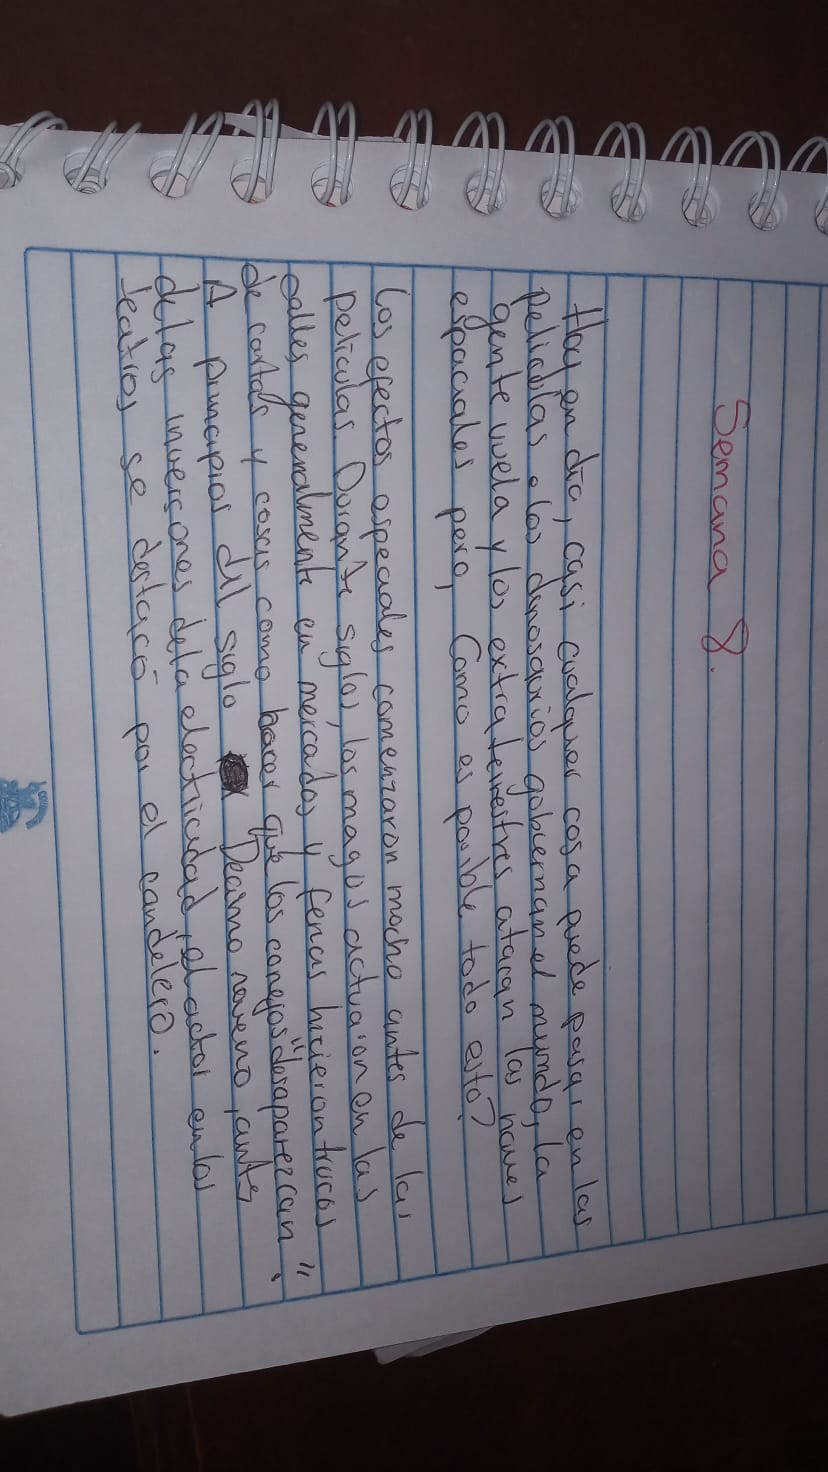 Semana 8.
Hoy en día, casi cualquier cosa puede pasar en las
peliculas o los dinosaurios gobiernan el mundo, la
gente vuela y los extraterrestres atacan las naves
espaciales pero, Como es posible todo esto?
Los efectos especiales comenzaron mocho antes de las
peliculas. Durante siglos, los magos actuaron en las
calles generalmente en mercados y ferias hicieron trucos
de cartas y cosas como hacer que los conejos "desaparezcan".
A principios del siglo Decimo noveno, antes
de las inversiones de la electricidad, el actor en los
teatros se destacó por el candelero.